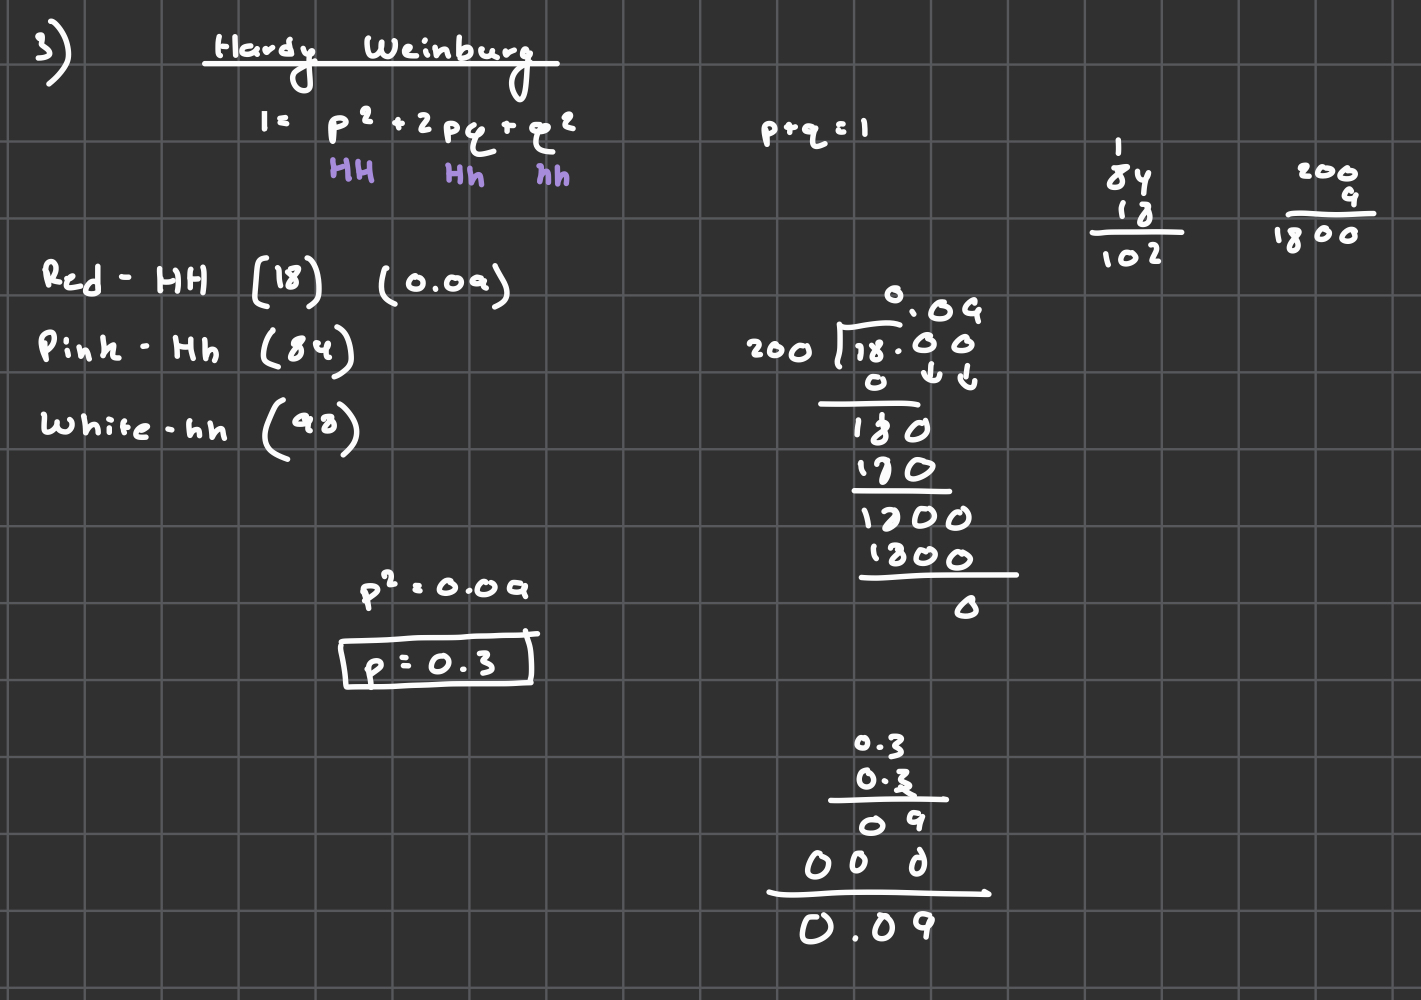 3) Hardy Weinburg
1 = p² + 2pq + q²
HH Hh hh
p+q=1
1
84
18
102
200
9
1800
Red - HH (18) (0.09)
Pink - Hh (84)
White - hh (98)
0.09
200 18.00
0
180
180
1800
1800
0
p² = 0.09
p = 0.3
0.3
0.3
09
000
0.09